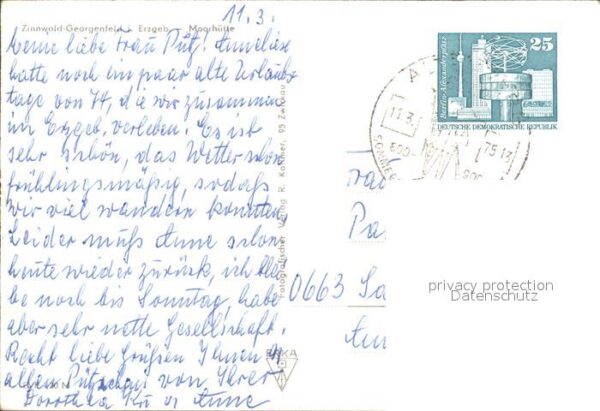 11.3.
Zinnwald-Georgenfeld Erzgeb. Moorhütte
Meine liebe Frau Pütz! Anneliese
hatte noch ein paar alte Urlaubs
tage von 74, die wir zusammen
im Erzgeb. verleben. Es ist
sehr schön, das Wetter schön
frühlingsmäßig, sodaß
wir viel wandern konnten.
Leider muß Anne schon
heute wieder zurück, ich blei
be noch bis Sonntag, habe
aber sehr nette Gesellschaft.
Recht liebe Grüßen Ihnen u.
allen von Ihrer
Dorothea u. Anne
Fotografischer Verlag R. Kallmer, 95 Zwickau
25
Berlin-Alexanderplatz
DEUTSCHE DEMOKRATISCHE REPUBLIK
11.3.
75-13
800-
SOMMER
Frau
Pa
0663 Sa
privacy protection
Datenschutz